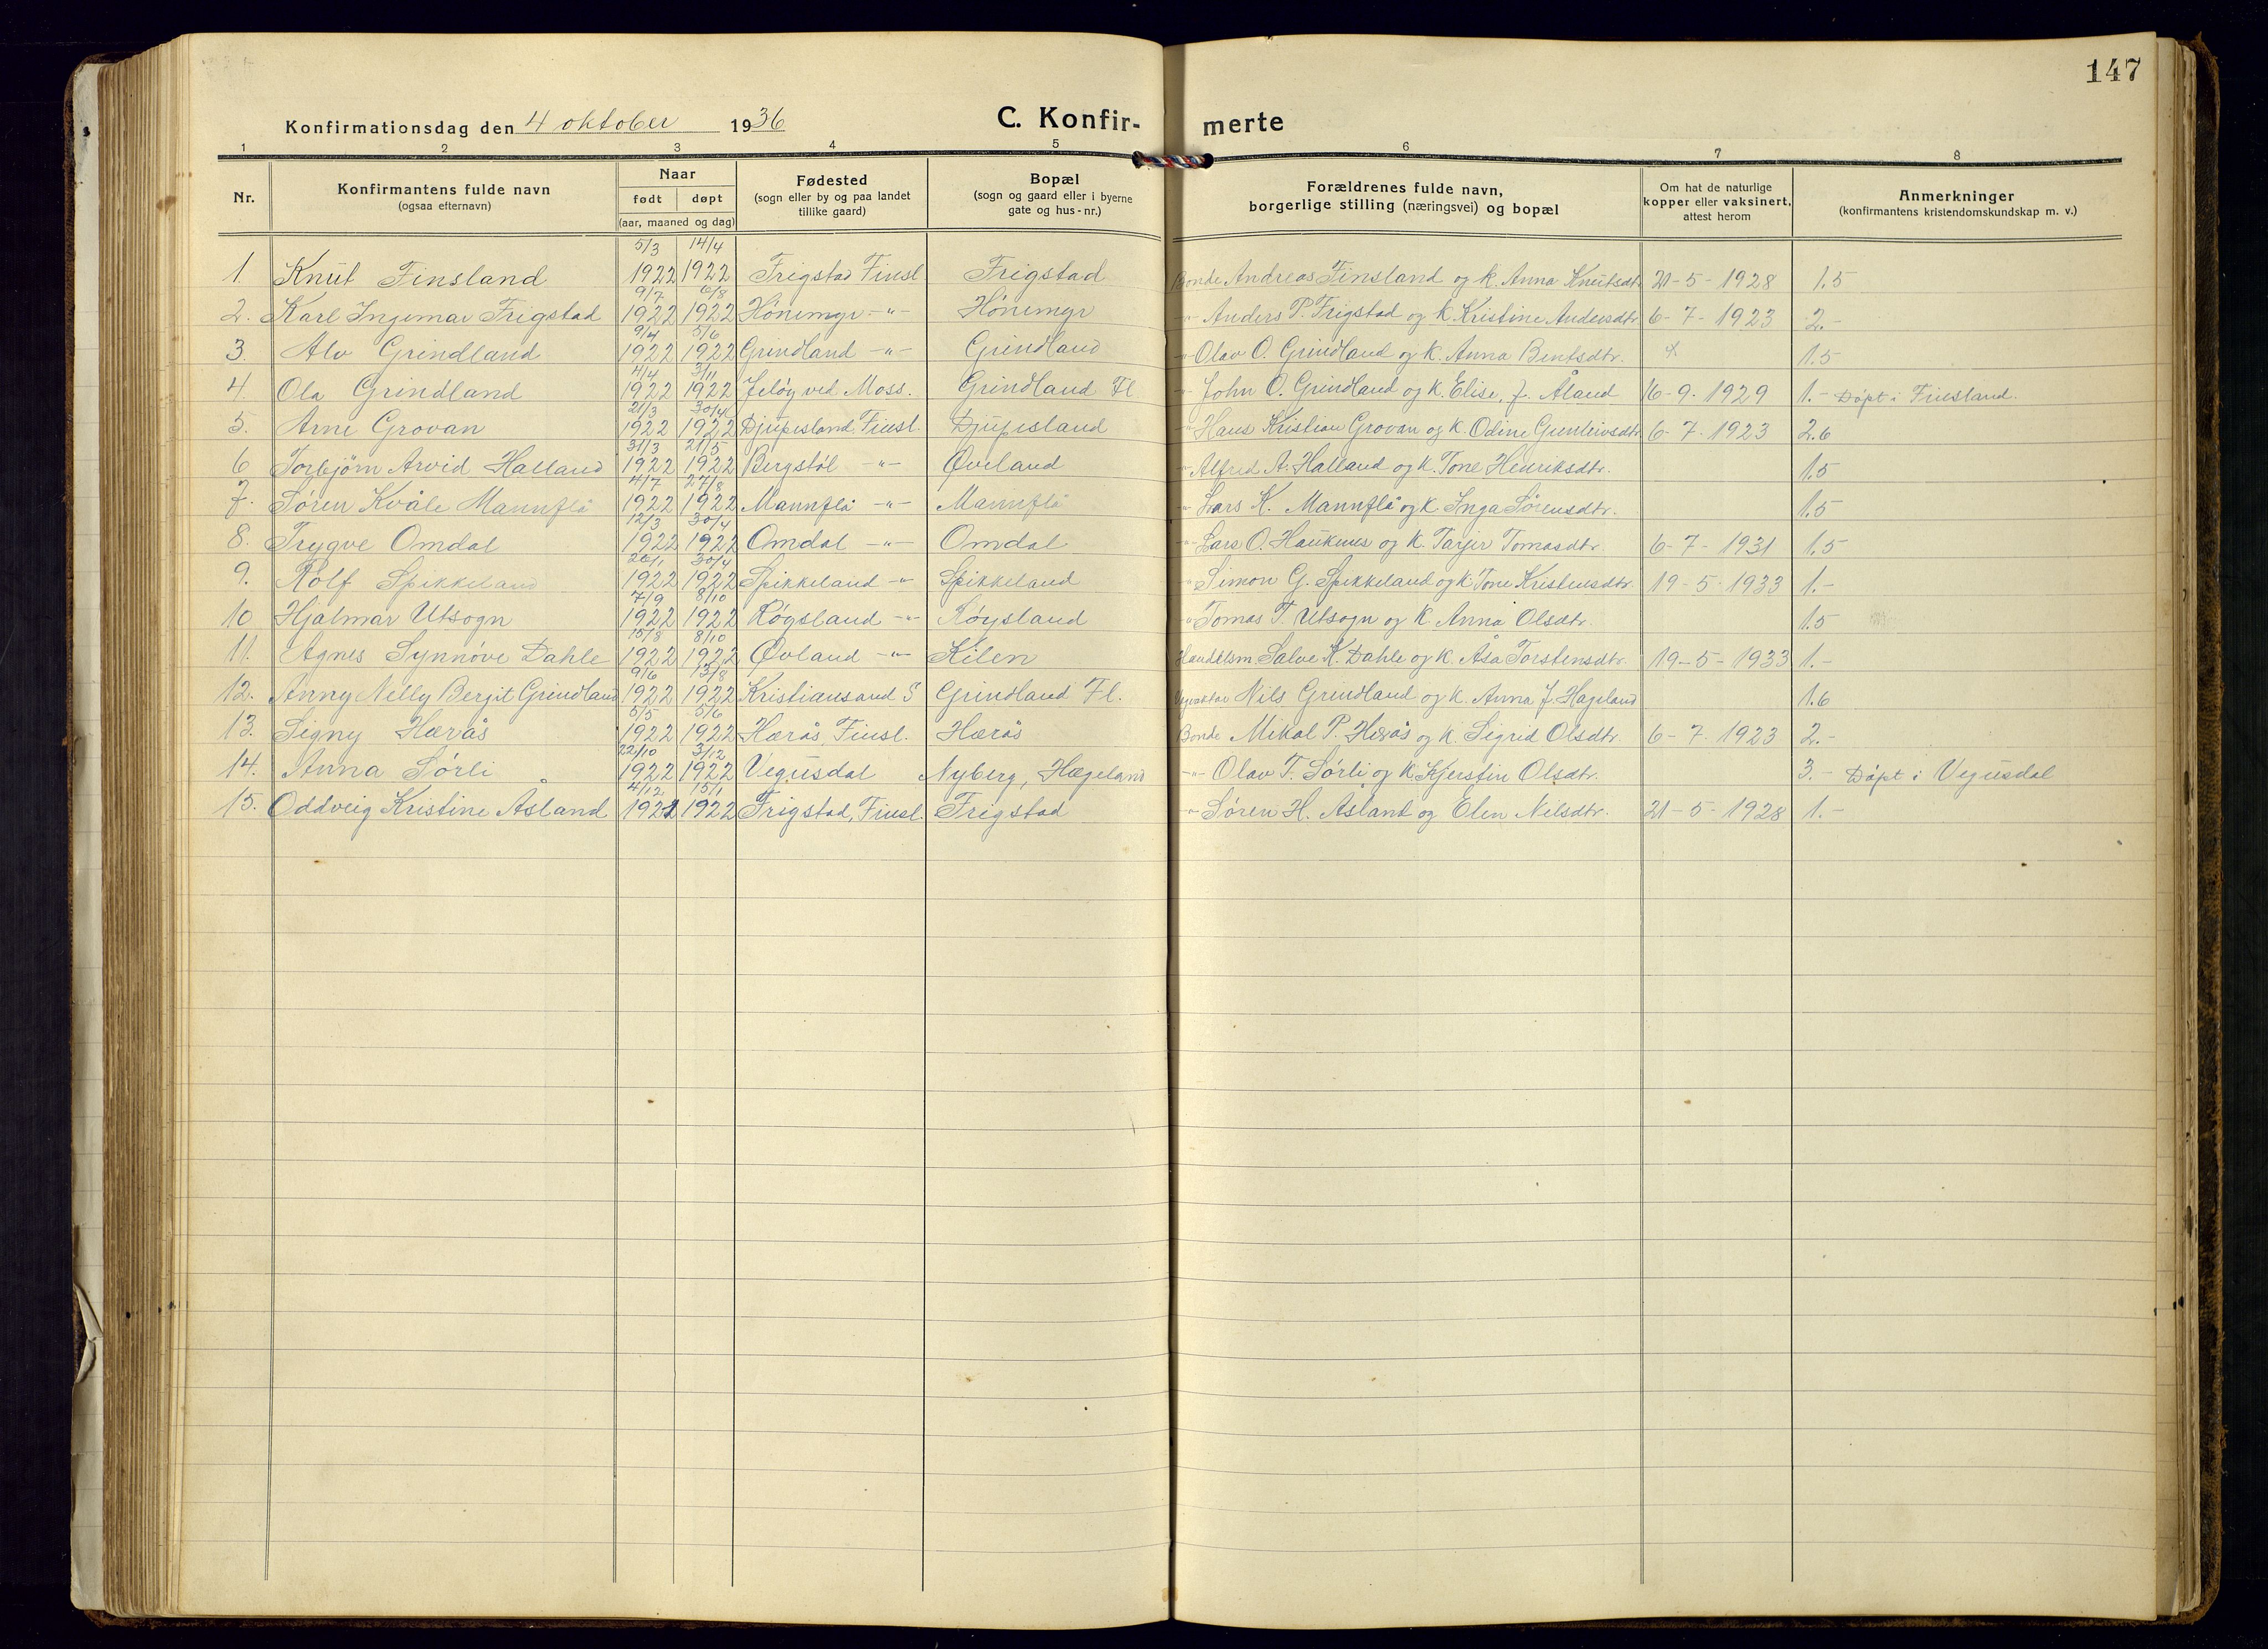 147
Konfirmationsdag den 4 oktober 1936 C. Konfir- merte
1 2 3 4 5 6 7 8
Nr. Konfirmantens fulde navn (ogsaa efternavn) Naar født døpt (aar, maaned og dag) Fødested (sogn eller by og paa landet tillike gaard) Bopæl (sogn og gaard eller i byerne gate og hus-nr.) Forældrenes fulde navn, borgerlige stilling (næringsvei) og bopæl Om hat de naturlige kopper eller vaksinert, attest herom Anmerkninger (konfirmantens kristendomskundskap m. v.)
1. Knut Finsland 5/3 1922 14/4 1922 Frigstad Finsl. Frigstad Bonde Andreas Finsland og k. Anna Knutsdtr. 21-5-1928 1.5
2. Karl Ingemar Frigstad 9/7 1922 6/8 1922 Hönemyr -"- Hönemyr -"- Anders P. Frigstad og k. Kristine Andersdtr. 6-7-1923 2.-
3. Alv Grindland 9/4 1922 5/6 1922 Grindland -"- Grindland -"- Olav O. Grindland og k. Anna Bentsdtr. 1.5
4. Ola Grindland 4/4 1922 3/11 1922 Jeløy ved Moss. Grindland Fl -"- John O. Grindland og k. Elise, f. Åland 16-9-1929 1.- Døpt i Finsland.
5. Arne Grovan 21/3 1922 30/4 1922 Djupesland Finsl. Djupesland -"- Hans Kristian Grovan og k. Odine Gunleivsdtr. 6-7-1923 2.6
6 Torbjörn Arvid Halland 31/3 1922 21/5 1922 Bergstöl -"- Øveland -"- Alfred A. Halland og k. Tone Henriksdtr. 1.5
7. Søren Kvåle Mannflå 4/7 1922 27/8 1922 Mannflå -"- Mannflå -"- Lars K. Mannflå og k. Inga Sørensdtr. 1.5
8. Trygve Omdal 12/3 1922 30/4 1922 Omdal -"- Omdal -"- Lars O. Haukenes og k. Tarjer Tomasdtr. 6-7-1931 1.5
9. Rolf Spikkeland 26/1 1922 30/4 1922 Spikkeland -"- Spikkeland -"- Simon G. Spikkeland og k. Tone Kristensdtr. 19-5-1933 1.-
10 Hjalmar Utsogn 7/9 1922 8/10 1922 Røysland -"- Røysland -"- Tomas T. Utsogn og k. Anna Olsdtr. 1.5
11. Agnes Synnöve Dahle 15/8 1922 8/10 1922 Øvland -"- Kilen Handelsm. Salve K. Dahle og k. Åsa Torstensdtr. 19-5-1933 1.-
12. Anny Nelly Bergit Grindland 9/6 1922 13/8 1922 Kristiansand S Grindland Fl. Nils Grindland og k. Anna J. Hageland 1.6
13. Signy Hærås 5/5 1922 5/6 1922 Hærås, Finsl. Hærås Bonde Mikal P. Hærås og k. Sigrid Olsdtr. 6-7-1923 2.-
14. Anna Sørli 22/10 1922 3/12 1922 Vegusdal Nyberg, Hægeland -"- Olav T. Sørli og k. Kjerstin Olsdtr. 3.- Døpt i Vegusdal
15. Oddveig Kristine Åsland 4/12 1921 15/1 1922 Frigstad, Finsl. Frigstad -"- Søren H. Åsland og Elen Nilsdtr. 21-5-1928 1.-